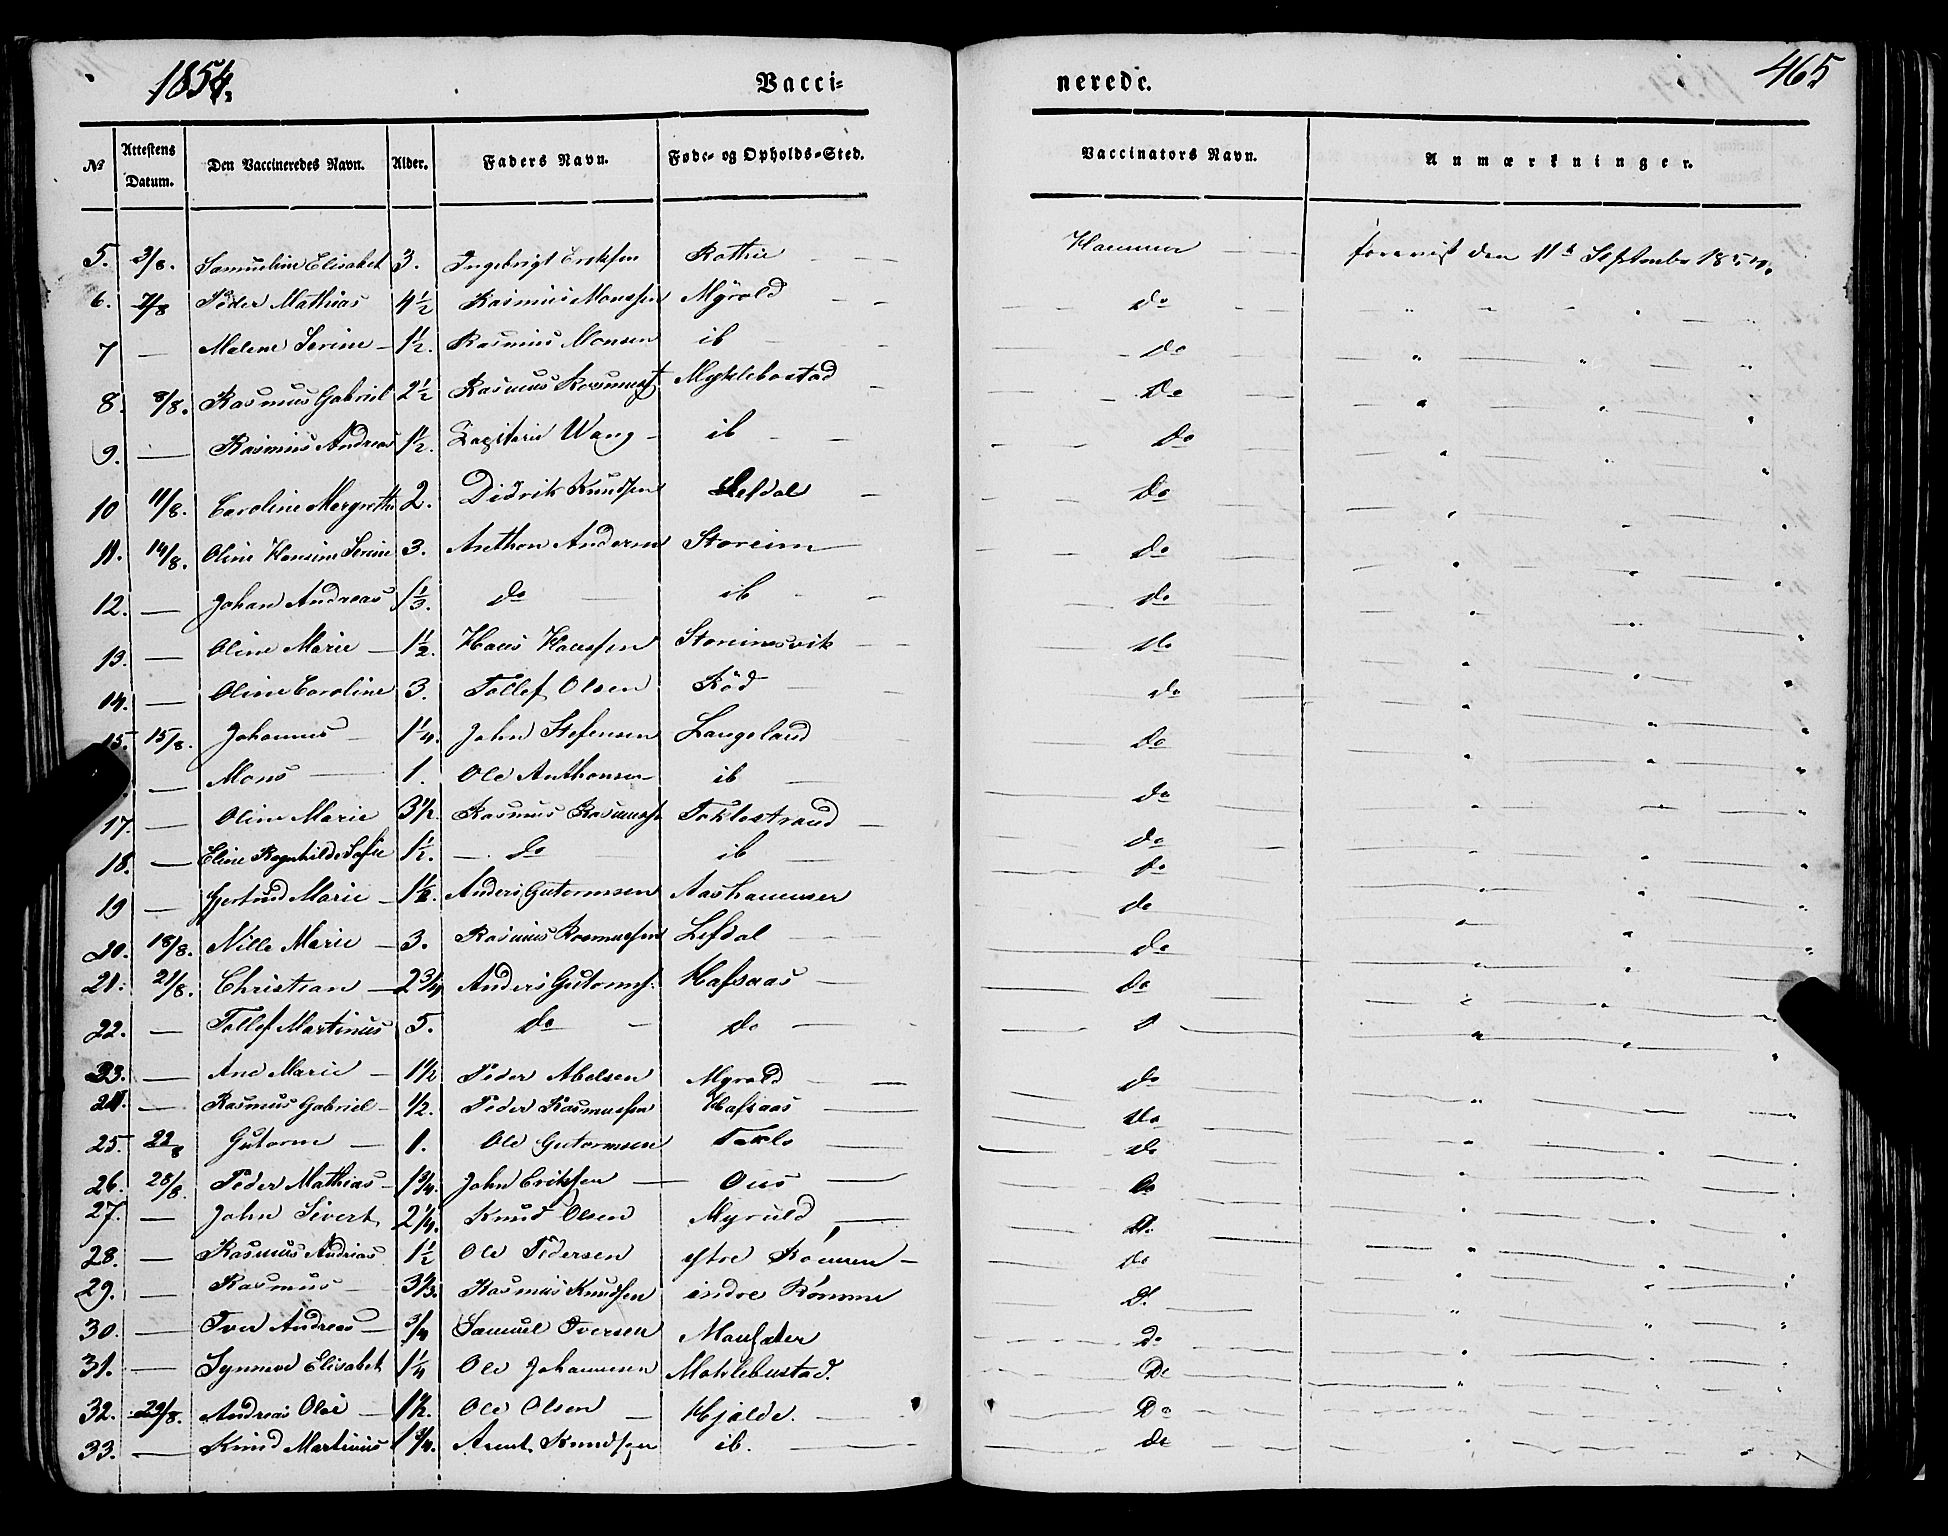 1854. Vacci- nerede. 465
No Attestens Datum. Den Vaccineredes Navn. Alder. Faders Navn. Føde- og Opholds-Sted. Vaccinators Navn. Anmærkninger.
5. 3/8. Samueline Elisabet 3. Ingebrigt Eriksen Hammer forevist den 11te September 1854.
6. 7/8 Peder Mathias 4 1/2 Rasmus Monsen Myrold do " " "
7 — Malene Serine — 1 1/2. Rasmus Monsen ib do " " "
8. 8/8. Rasmus Gabriel 2 1/2 Rasmus Myklebostad Do " " "
9. — Rasmus Andreas 1 1/2. Wang ib Do " " "
10 11/8. Caroline Margrethe 2. Didrik Knudsen Lefdal Do " " "
11. 14/8. Oline Hansine Serine 3. Anthon Andersen Storeim do " " "
12. — Johan Andreas 1 1/3. do ib do " " "
13. — Oline Marie — 1 1/2. Hans Hansen Storeimsvik do " " "
14. — Oline Caroline 3. Tollef Olsen Röd do " " "
15. 15/8. Johannes 1 1/4. John Stefensen Langeland do " " "
— Mons — 1. Ole Anthonsen ib do " " "
17. — Oline Marie 3 1/2. Rasmus Rasmuss. Taklestrand do " " "
18. — Eline Ragnhilde Sofie 1 1/2. — do ib do " " "
19 — Gertrud Marie — 1 1/2. Anders Gutormsen Aashammer do " " "
20. 18/8. Nille Marie — 3. Rasmus Rasmussen Lefdal do " " "
21. 21/8. Christian — 2 3/4 Anders Gutorms. Hafsaas do " " "
22. — Tollef Martinus 5. do do " " "
23. — Ane Marie — 1 1/2 Peder Abelsen Myrold do " " "
24. — Rasmus Gabriel 1/2. Peder Rasmussen Hafsaas do " " "
25 22/8 Gutorm — 1. Ole Gutormsen Takle do " " "
26. 28/8. Peder Mathias 1 3/4. John Eriksen — Ous — do " " "
27. — John Sivert 2 1/4. Knud Olsen Myrold — D. " " "
28. — Rasmus Andreas 1 1/2 Ole Pedersen ystre do " " "
29. — Rasmus 3 1/3. Rasmus Knudsen indre Rømme D. " " "
30. — Iver Andreas — 3/4 Samuel Iversen Do " " "
31. — Synneve Elisabet 1 1/4 Ole Johannesen Maklebustad. Do " "
32. 29/8. Andreas Olai — 1 1/2. Ole Olsen Hjelde. Do
33. — Knud Martinus 1 3/4. Arent Knudsen ib. do " "